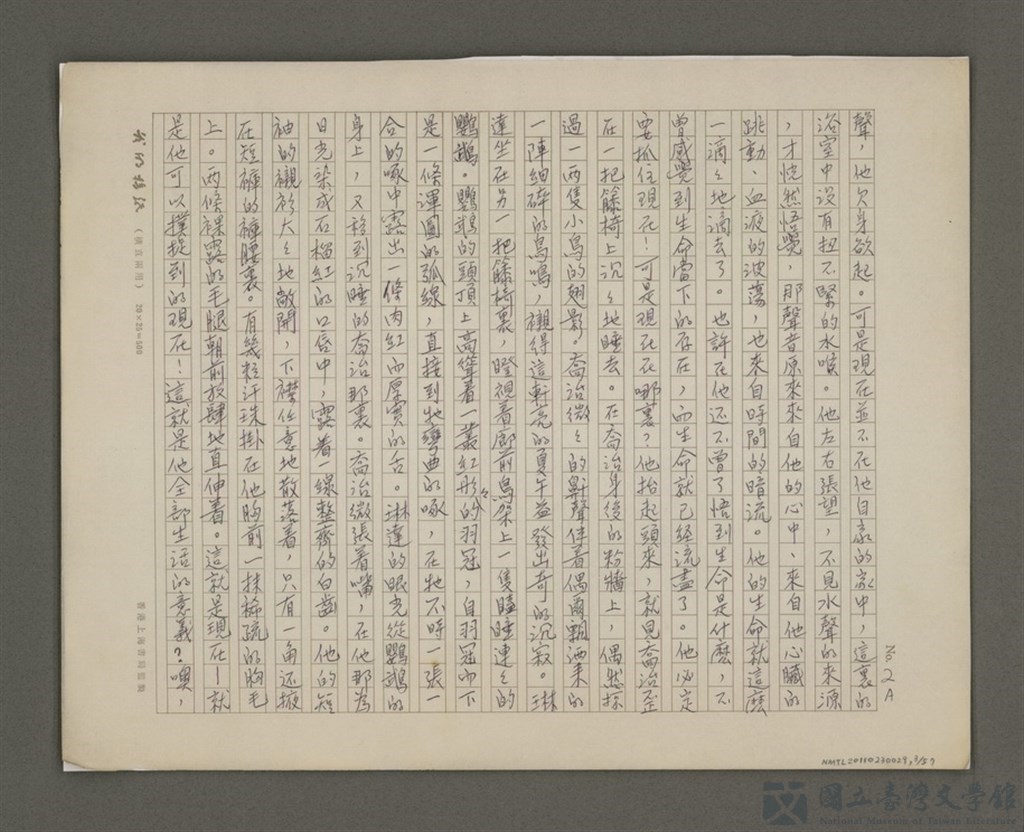 No 2 A
聲，他欠身欲起。可是現在並不在他自家的家中，這裏的
浴室中没有扭不緊的水喉。他左右張望，不見水聲的來源
，才恍然悟覺，那聲音原來來自他的心中、來自他心臟的
跳動、血液的波蕩，也來自時間的暗流。他的生命就這麼
一滴々地滴去了。也許在他還不曾了悟到生命是什麼，不
曾感覺到生命當下的存在，而生命就已經流盡了。他必定
要抓住現在！可是現在在哪裏？他抬起頭來，就見喬治歪
在一把籐椅上沉々地睡去。在喬治身後的粉牆上，偶然掠
過一兩隻小鳥的翅影。喬治微々的鼾聲伴着偶爾飄洒來的
一陣細碎的鳥鳴，襯得這軒亮的夏午益發出奇的沉寂。琳
達坐在另一把籐椅裏，瞪視着廊前鳥架上一隻瞌睡連々的
鸚鵡。鸚鵡的頭頂上高聳着一叢紅彤々的羽冠，自羽冠而下
是一條渾圓的弧線，直接到牠彎曲的喙，在牠不時一張一
合的喙中露出一條肉紅而厚實的舌。琳達的眼光從鸚鵡的
身上，又移到沉睡的喬治那裏。喬治微張着嘴，在他那為
日光染成石榴紅的口唇中，露着一線整齊的白齒。他的短
袖的襯衫大々地敞開，下襟任意地散落着，只有一角还掖
在短褲的褲腰裏。有幾粒汗珠掛在他胸前一抹稀疏的胸毛
上。兩條裸露的毛腿朝前放肆地直伸着。這就是現在—就
是他可以撲捉到的現在！這就是他全部生活的意義？噢，
20×25=500
香港上海書局監製
NMTL20110270029,
國立臺灣文學館
National Museum of Taiwan Literature